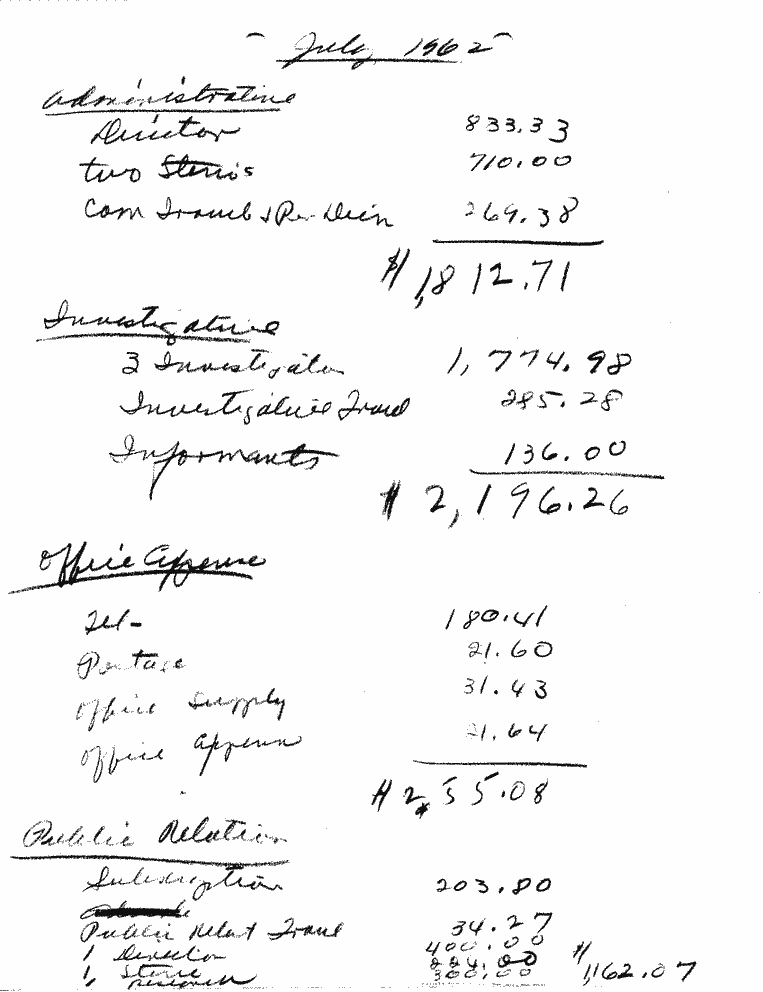 - July 1962 -
Administrative
Director 833.33
two Steno's 710.00
Com Travel & Per Diem 269.38
$1,812.71
Investigative
3 Investigator 1,774.98
Investigative Travel 285.28
Informants 136.00
$2,196.26
Office Expense
Tel- 180.41
Postage 21.60
Office Supply 31.43
Office Expense 21.64
$255.08
Public Relation
Subscription 203.80
Public Relat Travel 34.27
1 Director 400.00
1 Steno 224.00
1 research 300.00 $1,162.07